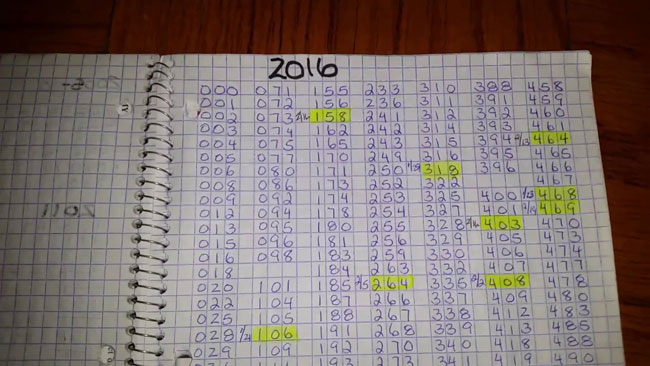 2016
000 071 155 233 310 388 458
001 072 156 236 311 391 459
002 073 158 241 312 392 460
003 074 162 242 314 393 461
004 075 165 243 315 394 464
005 077 170 249 316 395 465
006 080 171 250 318 396 466
008 086 173 252 322 467
009 092 174 253 325 400 468
012 094 178 254 327 401 469
013 095 180 255 328 403 470
015 096 181 256 329 405 473
016 098 183 259 330 406 474
018 184 263 332 407 477
020 101 185 264 335 408 478
022 104 187 266 337 409 480
025 105 188 267 338 412 483
028 106 191 268 339 413 485
029 109 192 270 340 418 488
193 273 341 419 490